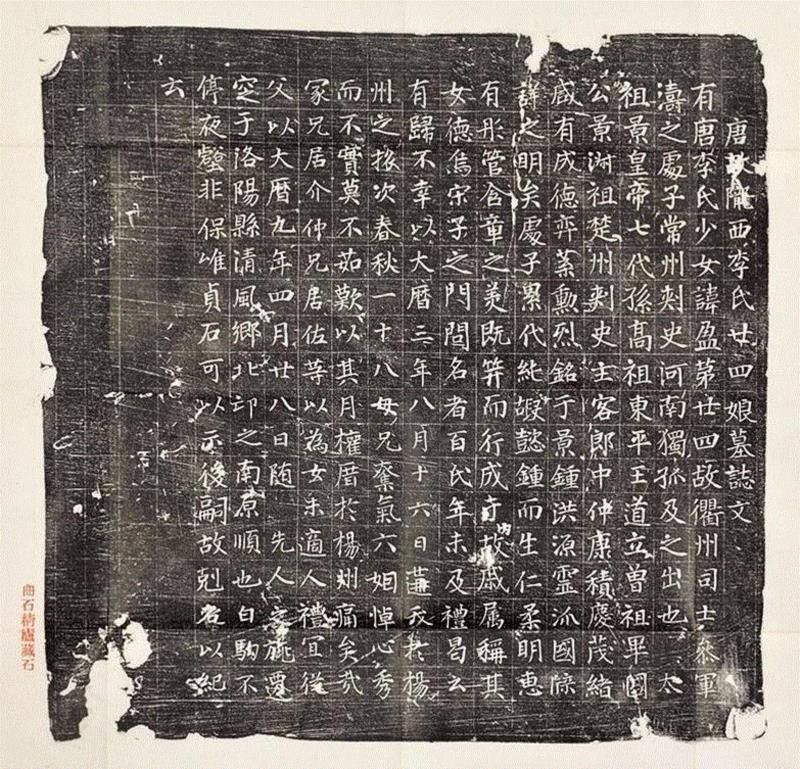 唐故隴西李氏廿四娘墓誌文
有唐李氏少女諱盈第廿四故衢州司士叅軍
濤之處子常州刺史河南獨孤及之出也 太
祖景皇帝七代孫高祖東平王道立曾祖畢國
公景淑祖楚州刺史主客郎中仲康積慶茂緒
咸有成德弈葉勳烈銘于景鍾洪源靈派國牒
詳之明矣處子累代純嘏懿鍾而生仁柔明惠
有彤管含章之美既笄而行成于內故戚属稱其
女德焉宋子之門問名者百氏年未及禮曷云
有歸不幸以大曆三年八月十六日遘疾於楊
州之揔次春秋一十八母兄奪氣六姻悼心秀
而不實莫不茹歎以其月權厝於楊州痛矣哉
冢兄居介仲兄居佐等以為女未適人禮宜從
父以大曆九年四月廿八日随 先人之旐遷
窆于洛陽縣清風鄉北邙之南原順也白駒不
停夜壑非保唯貞石可以示後嗣故剋名以紀
云
曲石精廬藏石